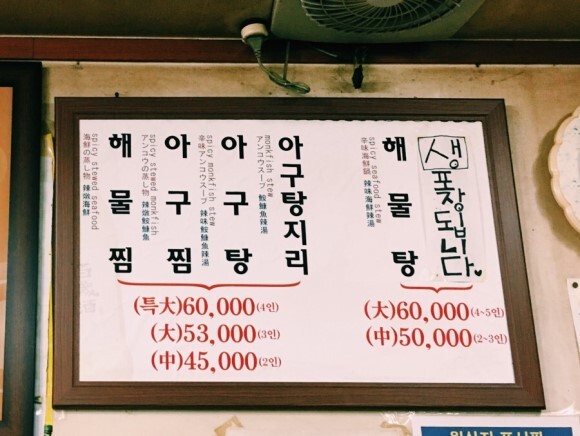 해물찜
spicy stewed seafood
海鮮の蒸し物 辣燉海鮮
아구찜
spicy stewed monkfish
アンコウの蒸し物 辣燉鮟鱇魚
아구탕
spicy monkfish stew
辛味アンコウスープ 辣味鮟鱇魚辣湯
아구탕지리
monkfish stew
アンコウスープ 鮟鱇魚辣湯
(특大)60,000(4인)
(大)53,000(3인)
(中)45,000(2인)
해물탕
spicy seafood stew
辛味海鮮鍋 辣味海鮮辣湯
생
포장됩니다
(大)60,000(4~5인)
(中)50,000(2~3인)